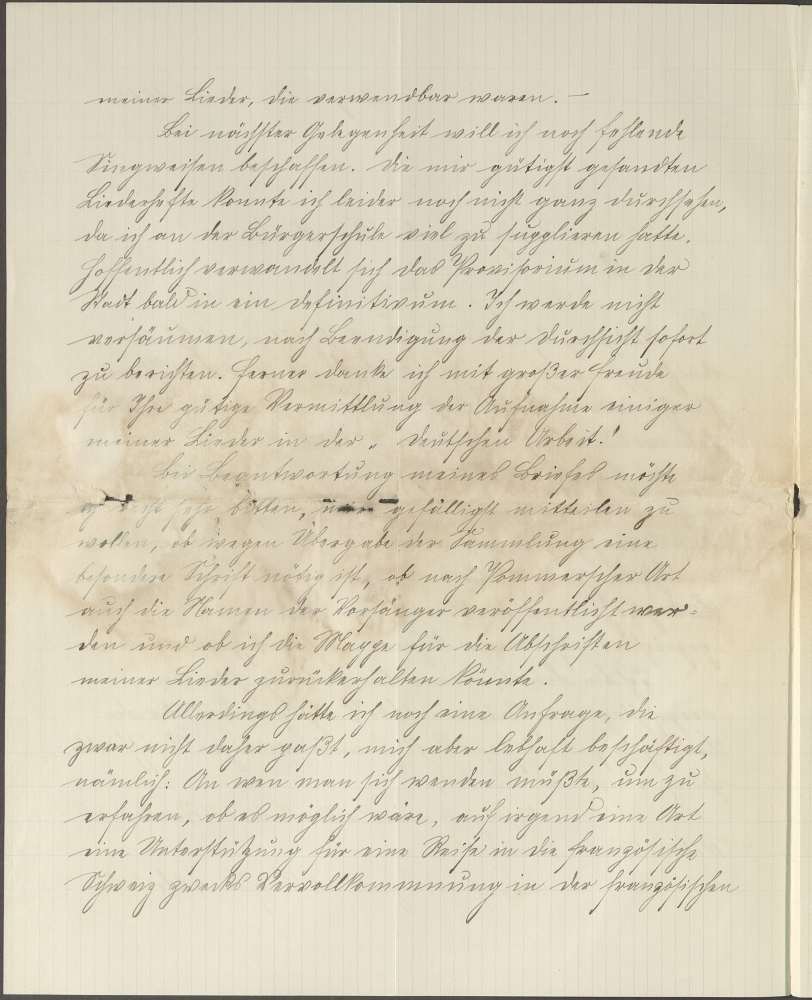 meiner Lieder, die verwendbar waren. –
Bei nächster Gelegenheit will ich noch fehlende
Singweisen beschaffen. Die mir gütigst gesandten
Liederhefte konnte ich leider noch nicht ganz durchsehen,
da ich an der Bürgerschule viel zu supplieren hatte.
Hoffentlich verwandelt sich das Provisorium in der
Stadt bald in ein Definitivum. Ich werde nicht
versäumen, nach Beendigung der Durchsicht sofort
zu berichten. Ferner danke ich mit großer Freude
für Ihre gütige Vermittlung der Aufnahme einiger
meiner Lieder in der „Deutschen Arbeit."
Bei Beantwortung meines Briefes möchte
ich recht sehr bitten, mir gefälligst mitteilen zu
wollen, ob wegen Übergabe der Sammlung eine
besondere Schrift nötig ist, ob nach Pommerscher Art
auch die Namen der Vorsänger veröffentlicht wer=
den und ob ich die Mappe für die Abschriften
meiner Lieder zurückerhalten könnte.
Allerdings hätte ich noch eine Anfrage, die
zwar nicht daher paßt, mich aber lebhaft beschäftigt,
nämlich: An wen man sich wenden müßte, um zu
erfahren, ob es möglich wäre, auf irgend eine Art
eine Unterstützung für eine Reise in die französische
Schweiz zwecks Vervollkommnung in der französischen